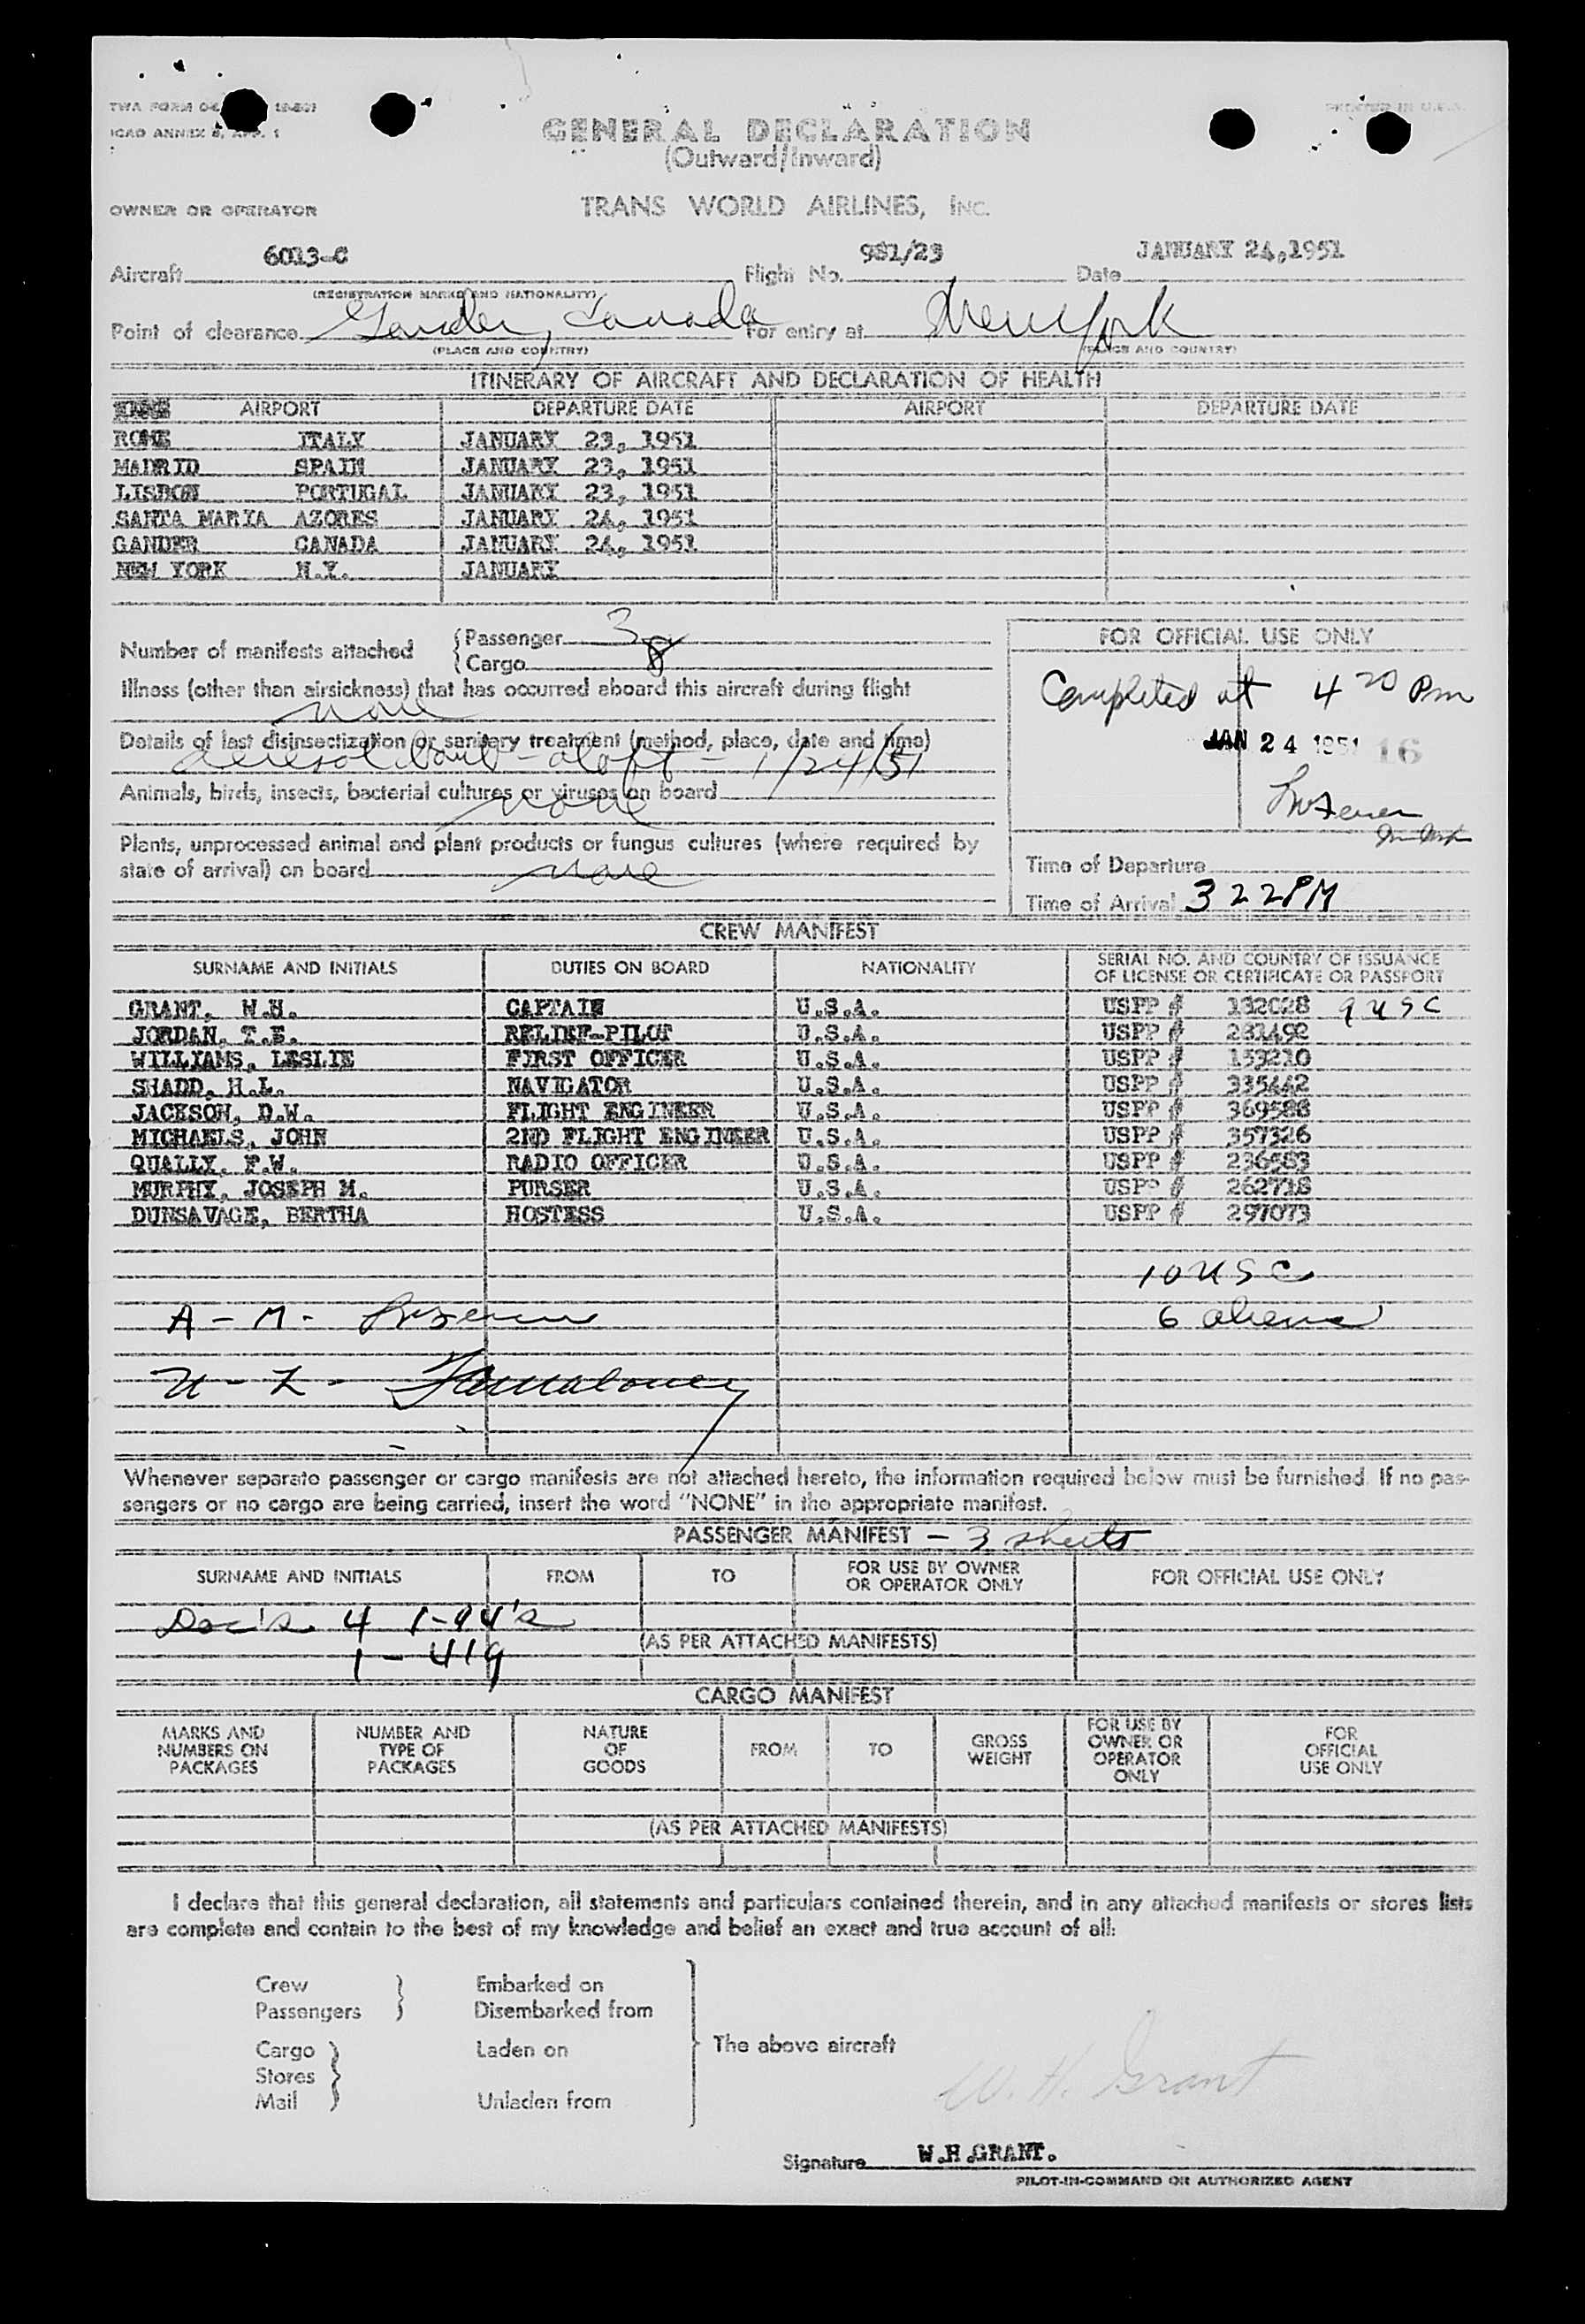 GENERAL DECLARATION
(Outward/Inward)
ICAO ANNEX
PRINTED IN U.S.A.
OWNER OR OPERATOR TRANS WORLD AIRLINES, INC.
Aircraft 6013-C Flight No. 981/23 Date JANUARY 24,1951
(REGISTRATION MARKS AND NATIONALITY)
Point of clearance Gander, Canada For entry at New York
(PLACE AND COUNTRY) (PLACE AND COUNTRY)
ITINERARY OF AIRCRAFT AND DECLARATION OF HEALTH
AIRPORT DEPARTURE DATE AIRPORT DEPARTURE DATE
ROME ITALY JANUARY 23, 1951
MADRID SPAIN JANUARY 23, 1951
LISBON PORTUGAL JANUARY 23, 1951
SANTA MARIA AZORES JANUARY 24, 1951
GANDER CANADA JANUARY 24, 1951
NEW YORK N.Y. JANUARY
Number of manifests attached Passenger 3
Cargo 8
Illness (other than airsickness) that has occurred aboard this aircraft during flight
none
Details of last disinsectization or sanitary treatment (method, place, date and time)
aloft - 1/24/51
Animals, birds, insects, bacterial cultures or viruses on board
none
Plants, unprocessed animal and plant products or fungus cultures (where required by
state of arrival) on board none
FOR OFFICIAL USE ONLY
Completed at 4 20 Pm
JAN 24 1951 16
Time of Departure
Time of Arrival 3 22 PM
CREW MANIFEST
SURNAME AND INITIALS DUTIES ON BOARD NATIONALITY SERIAL NO. AND COUNTRY OF ISSUANCE
OF LICENSE OR CERTIFICATE OR PASSPORT
GRANT, W.H. CAPTAIN U.S.A. USPP # 132028 9 USC
JORDAN, T.E. RELIEF-PILOT U.S.A. USPP # 231492
WILLIAMS, LESLIE FIRST OFFICER U.S.A. USPP # 159210
SHADD, H.L. NAVIGATOR U.S.A. USPP # 335442
JACKSON, D.W. FLIGHT ENGINEER U.S.A. USPP # 369588
MICHAELS, JOHN 2ND FLIGHT ENGINEER U.S.A. USPP # 357326
QUALLY, F.W. RADIO OFFICER U.S.A. USPP # 236583
MURPHY, JOSEPH M. PURSER U.S.A. USPP # 262718
DUNSAVAGE, BERTHA HOSTESS U.S.A. USPP # 297073
10 USC
A - M - 6 aliens
Whenever separate passenger or cargo manifests are not attached hereto, the information required below must be furnished. If no pas-
sengers or no cargo are being carried, insert the word "NONE" in the appropriate manifest.
PASSENGER MANIFEST - 3 sheets
SURNAME AND INITIALS FROM TO FOR USE BY OWNER
OR OPERATOR ONLY FOR OFFICIAL USE ONLY
Doc's 4 1-94's
(AS PER ATTACHED MANIFESTS)
1 - 419
CARGO MANIFEST
MARKS AND
NUMBERS ON
PACKAGES
NUMBER AND
TYPE OF
PACKAGES
NATURE
OF
GOODS
FROM
TO
GROSS
WEIGHT
FOR USE BY
OWNER OR
OPERATOR
ONLY
FOR
OFFICIAL
USE ONLY
(AS PER ATTACHED MANIFESTS)
I declare that this general declaration, all statements and particulars contained therein, and in any attached manifests or stores lists
are complete and contain to the best of my knowledge and belief an exact and true account of all:
Crew Embarked on
Passengers Disembarked from
Cargo Laden on The above aircraft
Stores
Mail Unladen from
W. H. Grant
Signature W.H.GRANT.
PILOT-IN-COMMAND OR AUTHORIZED AGENT